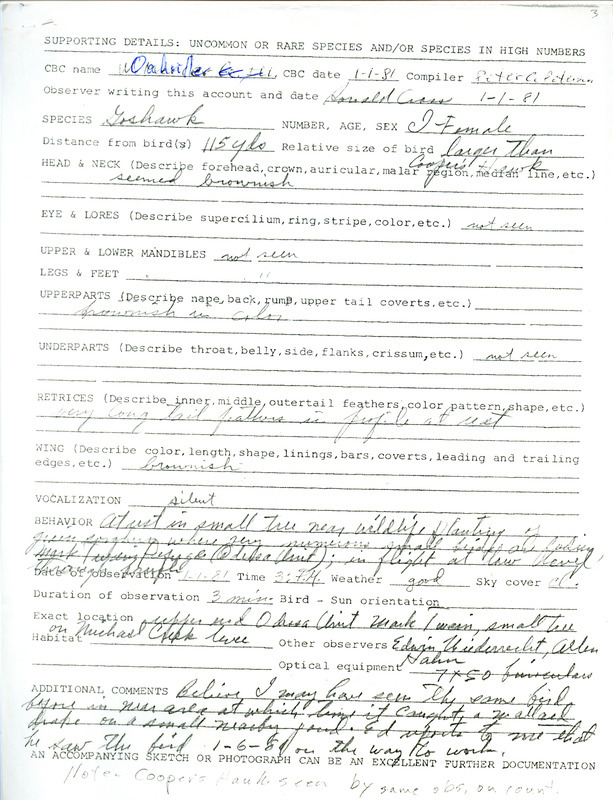 3
SUPPORTING DETAILS: UNCOMMON OR RARE SPECIES AND/OR SPECIES IN HIGH NUMBERS
CBC name CBC date 1-1-81 Compiler Peter
Observer writing this account and date Ronald 1-1-81
SPECIES Goshawk NUMBER, AGE, SEX 1-Female
Distance from bird(s) 115 yds Relative size of bird larger than
Coopers Hawk
HEAD & NECK (Describe forehead,crown,auricular,malar region,median line,etc.)
seemed brownish
EYE & LORES (Describe supercilium,ring,stripe,color,etc.) not seen
UPPER & LOWER MANDIBLES not seen
LEGS & FEET " "
UPPERPARTS (Describe nape,back,rump,upper tail coverts,etc.)
brownish in color
UNDERPARTS (Describe throat,belly,side,flanks,crissum,etc.) not seen
RETRICES (Describe inner,middle,outertail feathers,color pattern,shape,etc.)
very long tail feathers in profile at rest
WING (Describe color,length,shape,linings,bars,coverts,leading and trailing
edges,etc.) brownish
VOCALIZATION silent
BEHAVIOR At rest in small tree near wildlife planting of
where very numerous small birds are feeding,
Mark Twain Refuge (Odessa Unit); in flight at low level
Date of observation 1-1-81 Time Weather good Sky cover
Duration of observation 3 min. Bird - Sun orientation
Exact location upper end Odessa Unit Mark Twain, small tree
on Michael Creek levee
Habitat Other observers Edwin Allen
Hahn
Optical equipment 7x50 binoculars
ADDITIONAL COMMENTS Believe I may have seen the same bird
before in near area at which time it caught a mallard
drake on a small nearby pond. Ed reports to me that
he saw the bird 1-6-81 on the way to work.
AN ACCOMPANYING SKETCH OR PHOTOGRAPH CAN BE AN EXCELLENT FURTHER DOCUMENTATION
Note: Coopers Hawk seen by same obs. on count.